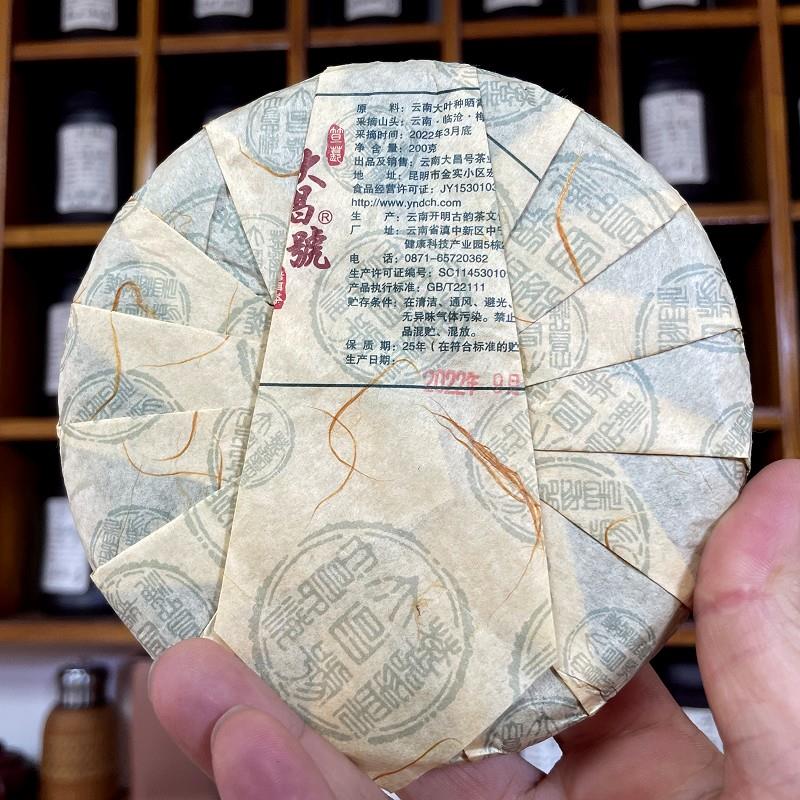 大昌號®
原 料：云南大叶种晒青
采摘山头：云南·临沧·梅
采摘时间：2022年3月底
净 含 量：200克
出品及销售：云南大昌号茶业
地 址：昆明市金实小区宏
食品经营许可证：JY1530103
http://www.yndch.com
生 产：云南开明古韵茶文
厂 址：云南省滇中新区中
健康科技产业园5栋
电 话：0871-65720362
生产许可证编号：SC11453010
产品执行标准：GB/T22111
贮存条件：在清洁、通风、避光、
无异味气体污染。禁止
品混贮、混放。
保 质 期：25年（在符合标准的贮
生产日期：
2022年 9月